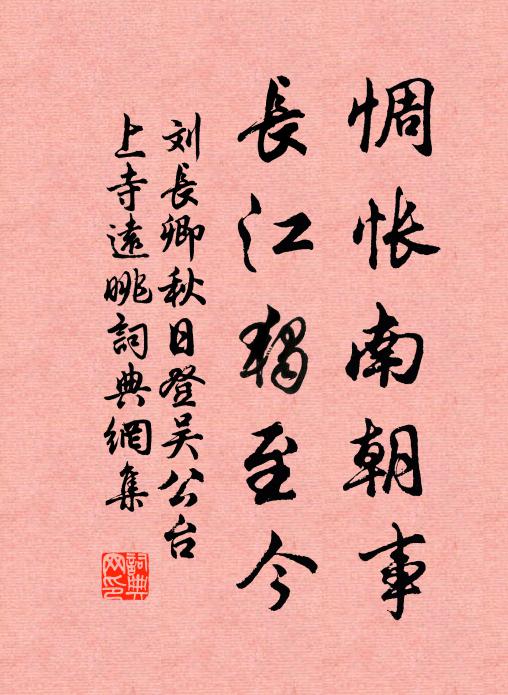 惆怅南朝事
長江獨至今
刘長卿秋日登吴公台
上寺遠眺詞典網集
詞典
网印